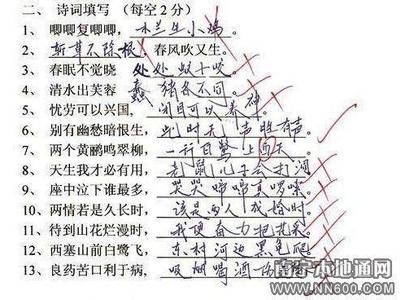 二、诗词填写（每空2分）
1、唧唧复唧唧，木兰生小鸡。
2、斩草不除根，春风吹又生。
3、春眠不觉晓 处处蚊子咬
4、清水出芙蓉 蠢猪各不同。
5、忧劳可以兴国，闭目可以养神
6、别有幽愁暗恨生，此时无声胜有声。
7、两个黄鹂鸣翠柳，一行白鹭上西天。
8、天生我才必有用，老鼠儿子会打洞
9、座中泣下谁最多，哭哭啼啼真啰嗦。
10、两情若是久长时，该是两人成婚时
11、待到山花烂漫时，我更奋力把花采
12、西塞山前白鹭飞，东村河边黑龟爬
13、良药苦口利于病，吸烟喝酒
南宁本地通网
www.NN600.com